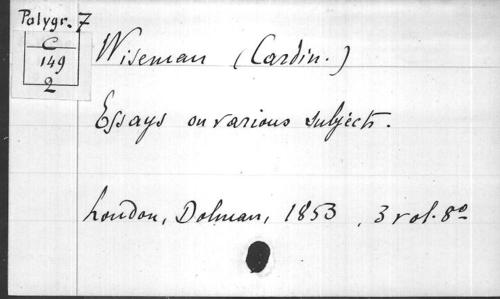 Polygr. 7
C
149
2
Wiseman (Cardin.)
Essays on various subjects.
London, Dolman, 1853, 3 vol. 8º